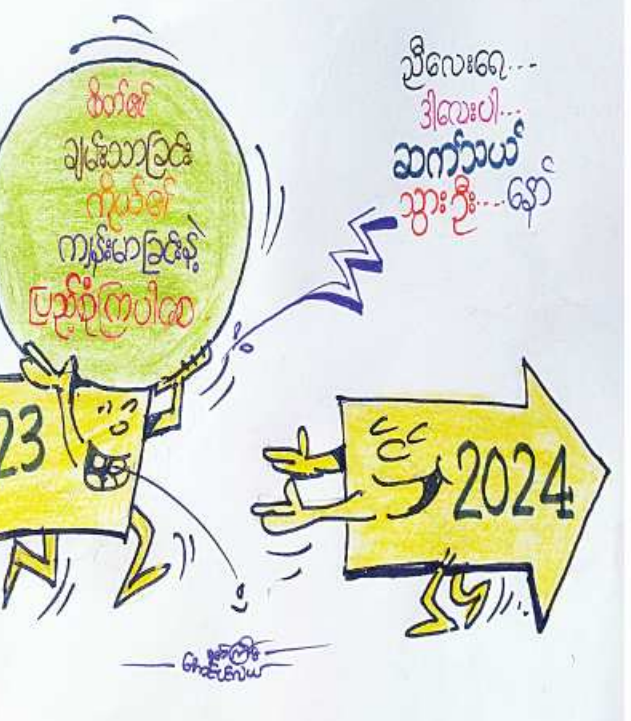 စိတ်၏
ချမ်းသာခြင်း
ကိုယ်၏
ကျန်းမာခြင်းနဲ့
ပြည့်စုံကြပါစေ
ညီလေးရေ...
ဒါလေးပါ...
ဆက်သယ်
သွားဦး....နော်
23
2024